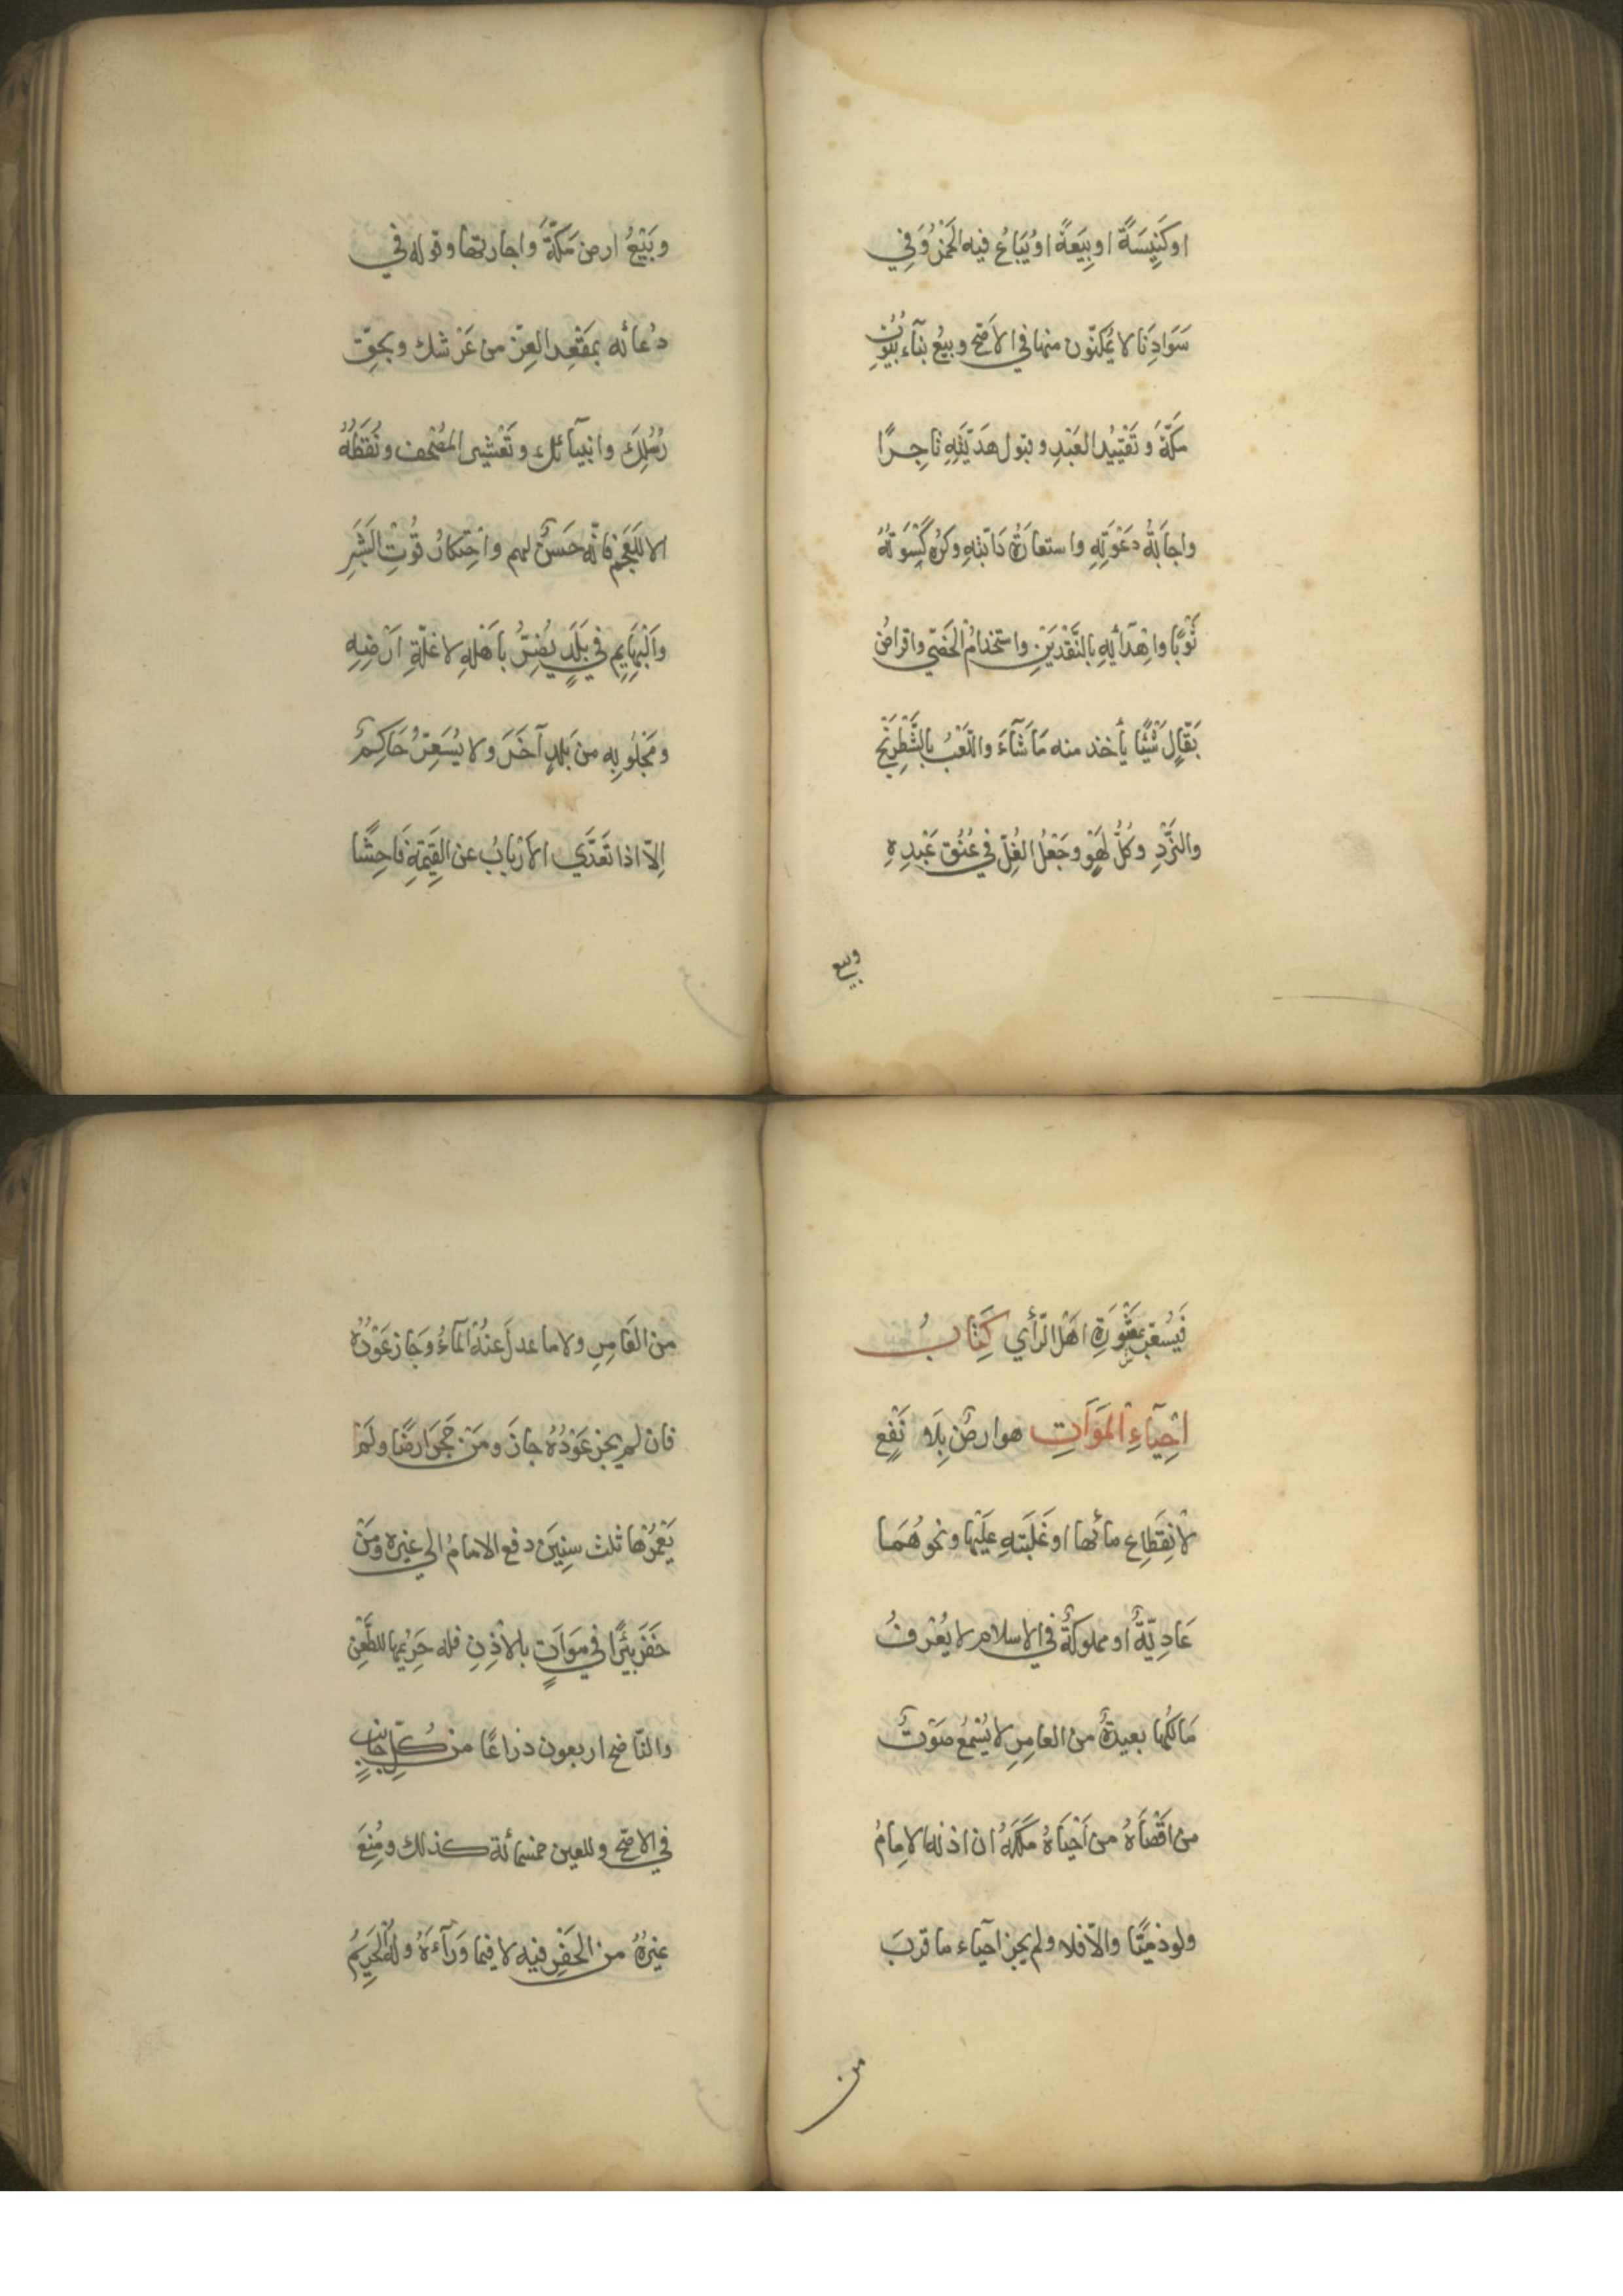 او كَنِيسَةً او بِيَعةً او يُبَاعُ فيه الخَمْرُ وَفِي
سَوَادِنَا لا يُمَكّنُون منها في الاَصَحِّ وبيعُ بنآء بُيُوتِ
مَكّةَ وَتَقْيِيْدُ العَبْدِ وقبول هَدِيّتِهِ تاجِرًا
واجابةُ دَعْوَتِهِ واستعارةُ دَابّتِهِ وكُرِهَ كِسْوَتهُ
ثَوْبًا واِهْدَآئِهِ بالنَّقْدَيْنِ واستخدامُ الخَصِّي واقراضُ
بَقّالٍ شَيْئًا يأخذ منه مَا شَآءَ واللّعْبُ بالشِّطْرَنْجِ
والنَّرْدِ وكُلُّ لَهْوٍ وجَعْلُ الغُلِّ في عُنُقِ عَبْدِهِ
وبيع
وبَيْعُ ارض مَكّةَ واجارتها وقوله في
دُعائه بمَقْعِد العِزّ من عَرْشك وبحَقِّ
رُسُلِكَ وانبيآئك وتَعْشِير المُصْحف ونُقَطُهُ
الا للعَجَمِ فانّه حَسَنٌ لهم واحْتِكارُ قُوْتِ البَشَرِ
والبَهَايِمِ في بَلَدٍ يُضِرُّ بأَهْلِهِ لا غَلّةِ اَرْضِهِ
ومَجْلُوبِه من بَلدٍ آخَرَ ولا يُسَعِّرُ حَاكِمٌ
اِلّا اذا تَعَدَّي الاَرْبابُ عن القِيْمَةِ فَاحِشًا
فَيُسَعِّر بمَشْوَرَةِ اهْل الرّأي كِتَابُ
احْيآءِ المَوَاتِ هو ارضٌ بِلَا نَفْعٍ
لانْقِطَاعِ مائها او غَلَبَتهِ عَلَيْها ونحوهُمَا
عَادِيّةٌ او مملوكةٌ في الاسلام لا يُعْرفُ
مَالكُها بعيدةٌ من العامِرِ لا يُسْمَعُ صَوْتٌ
من اقْصَاهُ من اَحْيَاهُ مَلَكَهُ ان اذن له الامامُ
ولو ذمّيّا والّا فلا ولم يجز احيآء ما قربَ
من
من العَامِرِ ولا ما عدلَ عنْهُ المآءُ وجَازَ عَوْدُهُ
فان لم يجز عَوْدُهُ جازَ ومَنْ حَجّرَ ارضًا ولَمْ
يَعْمُرْهَا ثلث سنِيْنَ دفع الامامُ الى غيره ومَنْ
حَفَرَ بئرًا في مَوَاتٍ بالاذِنِ فله حَرِيْمُها للعَطَنِ
والنّاضح اربعون ذراعًا من كُلِّ جانبٍ
في الاصَحّ وللعين خمسمائة كذلك ومُنِعَ
غيرهُ من الحَفْرِ فيه لا فيما وَرَآءَهُ ولَهُ الحَرِيْمُ